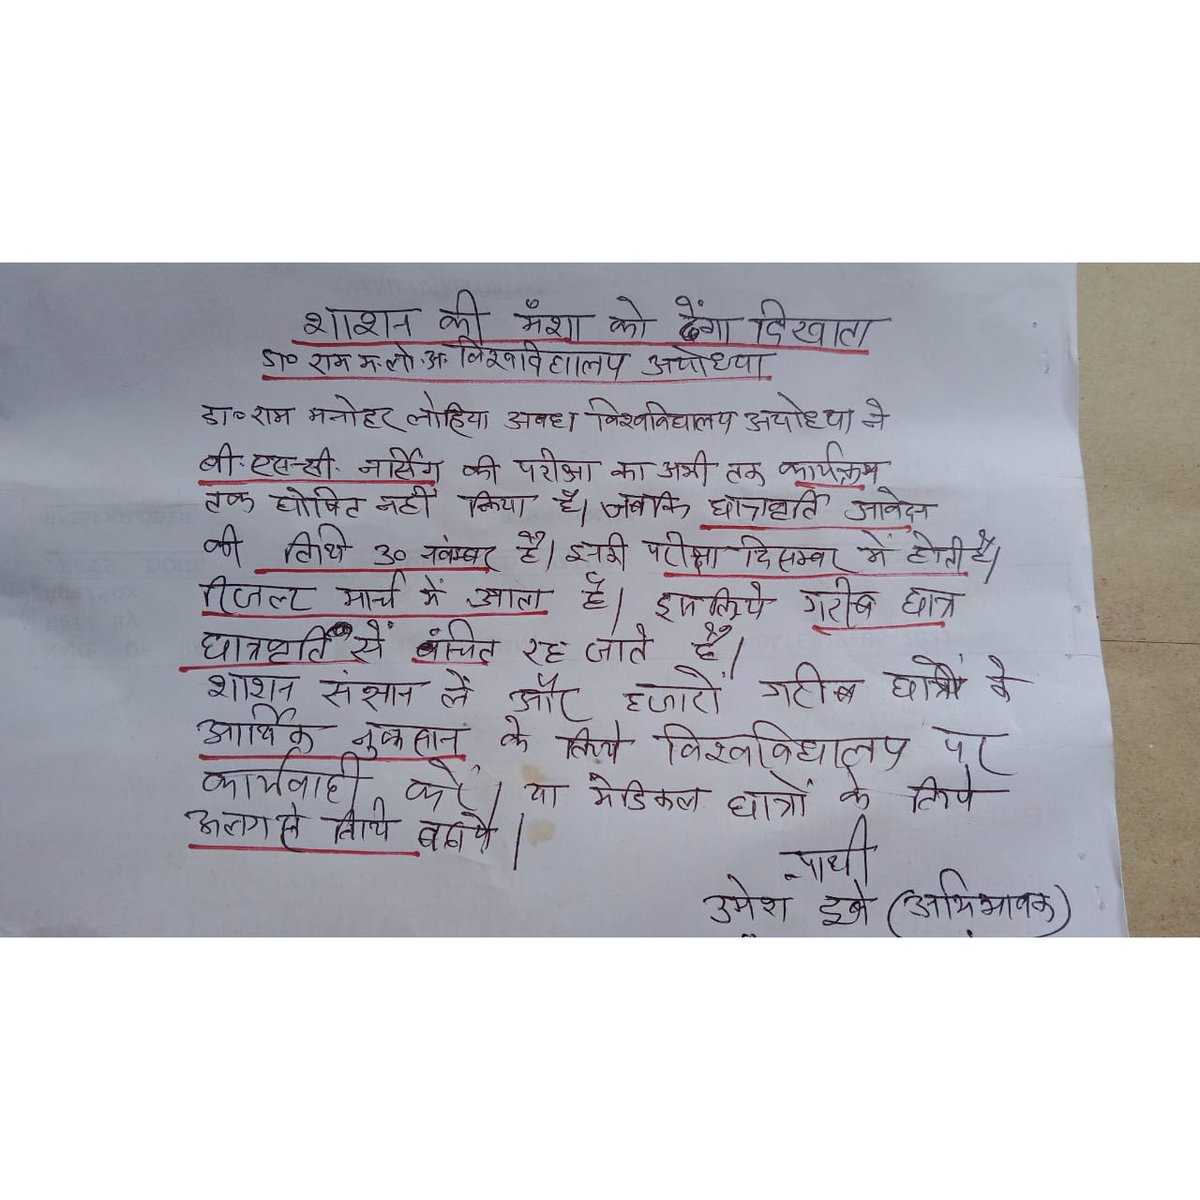 शाशन की मँशा को ठेंगा दिखाता
डा० राम म.लो.अ. विश्वविद्यालय अयोध्या
डा० राम मनोहर लोहिया अवध विश्वविद्यालय अयोध्या ने
बी.एस-सी. नर्सिंग की परीक्षा का अभी तक कार्यक्रम
तक घोषित नहीं किया है। जबकि छात्रवृति आवेदन
की तिथि 30 नवंम्बर है। इनकी परीक्षा दिसम्बर में होती है।
रिजल्ट मार्च में आता है। इसलिये गरीब छात्र
छात्रवृति सें बंचित रह जाते हैं।
शाशन संज्ञान लें और हजारों गरीब छात्रों के
आर्थिक नुकसान के लिये विश्वविद्यालय पर
कार्यवाही करें। या मेडिकल छात्रों के लिये
अलग से तिथि बढाये।
प्रार्थी
उमेश दूबे (अभिभावक)